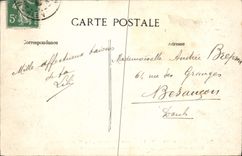 5c
CARTE POSTALE
Correspondance
Adresse
Mille affectueux baisers
de ta
Lili
Mademoiselle Andrée
61, rue des Granges
Besançon
Doubs